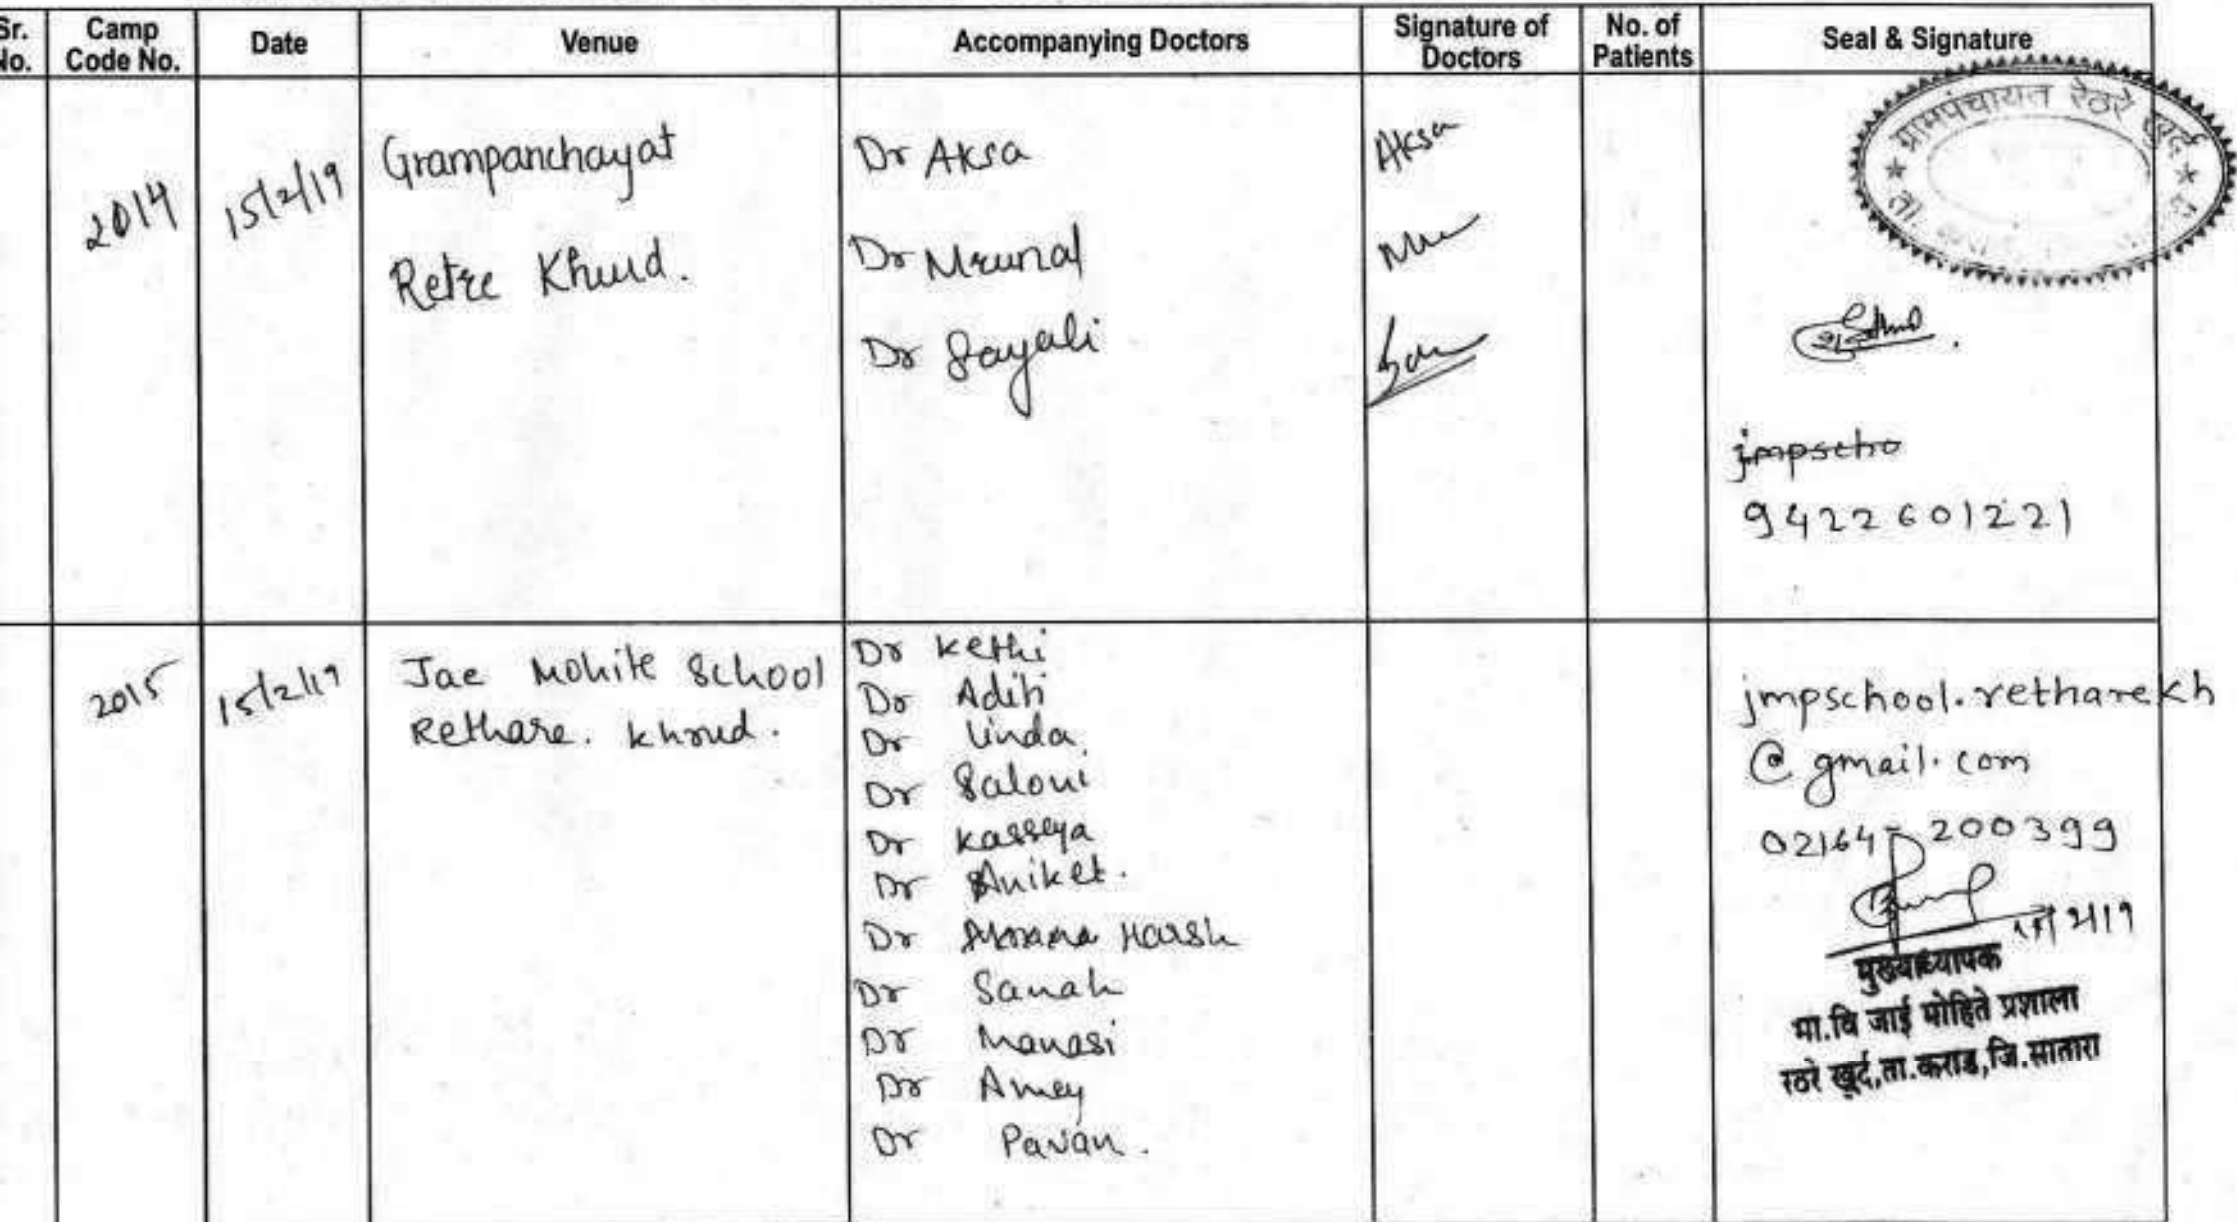 Sr. No. Camp Code No. Date Venue Accompanying Doctors Signature of Doctors No. of Patients Seal & Signature
2014 15/2/19 Grampanchayat Dr Aksa Aksa
Retre Khurd. Dr Mrunal
Dr Sayali
ग्रामपंचायत रेठरे खुर्द
jmpscho
9422601221
2015 15/2/19 Jae Mohite School Dr Kethi
Rethare. Khurd. Dr Aditi
Dr Linda
Dr Saloni
Dr Kasseya
Dr Aniket.
Dr Harsh
Dr Sanah
Dr Manasi
Dr Amey
Dr Pavan.
jmpschool.retharekh
@gmail.com
02164-200399
15/2/19
मुख्याध्यापक
मा.वि जाई मोहिते प्रशाला
रेठरे खुर्द,ता.कराड,जि.सातारा